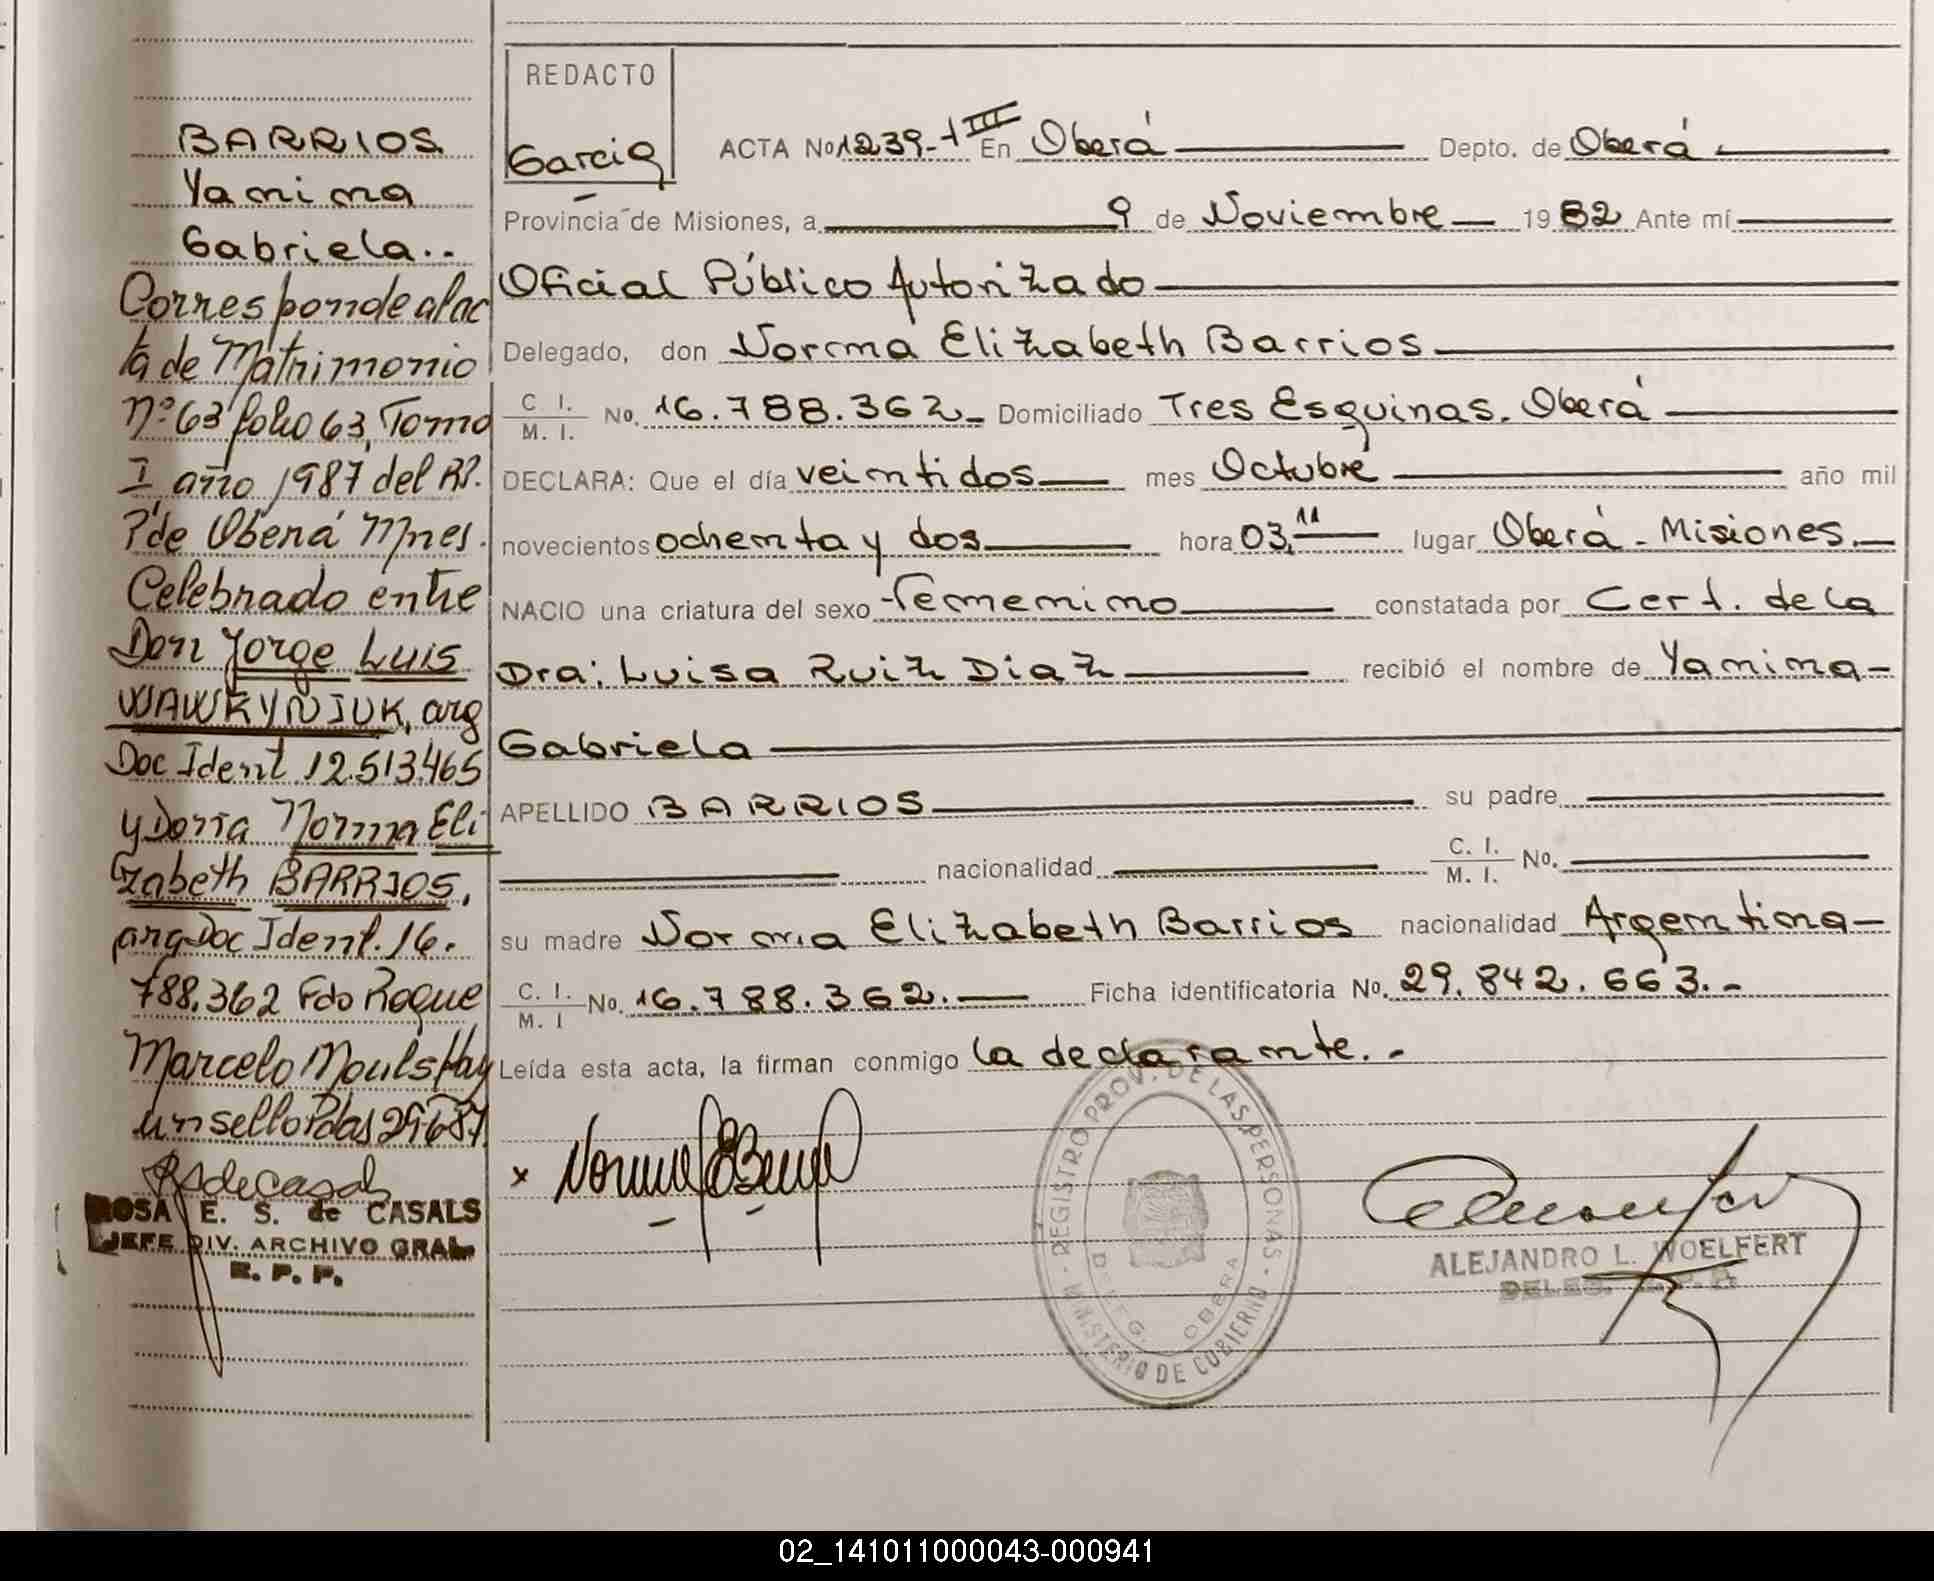 BARRIOS
Yanina
Gabriela..
Corresponde al ac
ta de Matrimonio
Nº 63 folio 63, Tomo
I, año 1987 del R.
P. de Oberá Mnes.
Celebrado entre
Don Jorge Luis
WAWRYNIUK, arg
Doc Ident 12.513.465
y Doña Norma Eli
zabeth BARRIOS,
arg Doc Ident. 16.
788.362 Fdo Roque
Marcelo Hay
un sello Pdas 29-6-87
ROSA E. S. de CASALS
JEFE DIV. ARCHIVO GRAL.
R. P. P.
REDACTO
Garcia
ACTA No 1239-TIII En Oberá Depto. de Oberá
Provincia de Misiones, a 9 de Noviembre 1982 Ante mí
Oficial Público Autorizado
Delegado, don Norma Elizabeth Barrios
C. I. / M. I. No. 16.788.362 Domiciliado Tres Esquinas. Oberá
DECLARA: Que el día veintidos mes Octubre año mil
novecientos ochenta y dos hora 03,11 lugar Oberá - Misiones.
NACIO una criatura del sexo Femenino constatada por Cert. de la
Dra: Luisa Ruiz Diaz recibió el nombre de Yanina
Gabriela
APELLIDO BARRIOS su padre
nacionalidad C. I. / M. I. No.
su madre Norma Elizabeth Barrios nacionalidad Argentina
C. I. / M. I No. 16.788.362. Ficha identificatoria No. 29.842.663.-
Leída esta acta, la firman conmigo la declarante.-
x Norma E Barrios
REGISTRO PROV. DE LAS PERSONAS - MINISTERIO DE GOBIERNO
DELEG. OBERA
ALEJANDRO L. WOELFERT
02_141011000043-000941